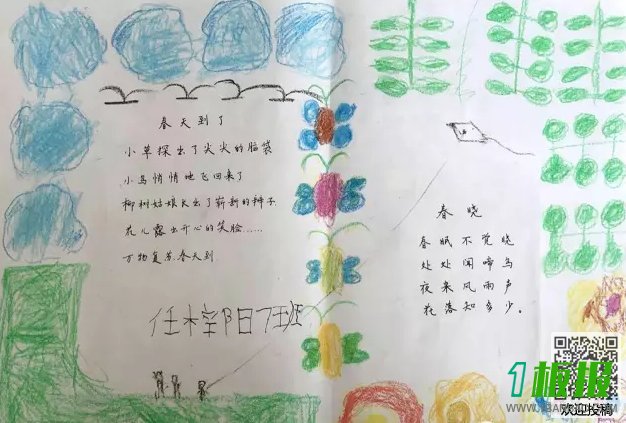 春天到了
小草探出了尖尖的脑袋
小鸟悄悄地飞回来了
柳树姑娘长出了崭新的种子
花儿露出开心的笑脸……
万物复苏.春天到
阳7班
春晓
春眠不觉晓
处处闻啼鸟
夜来风雨声
花落知多少。
1板报
欢迎投稿